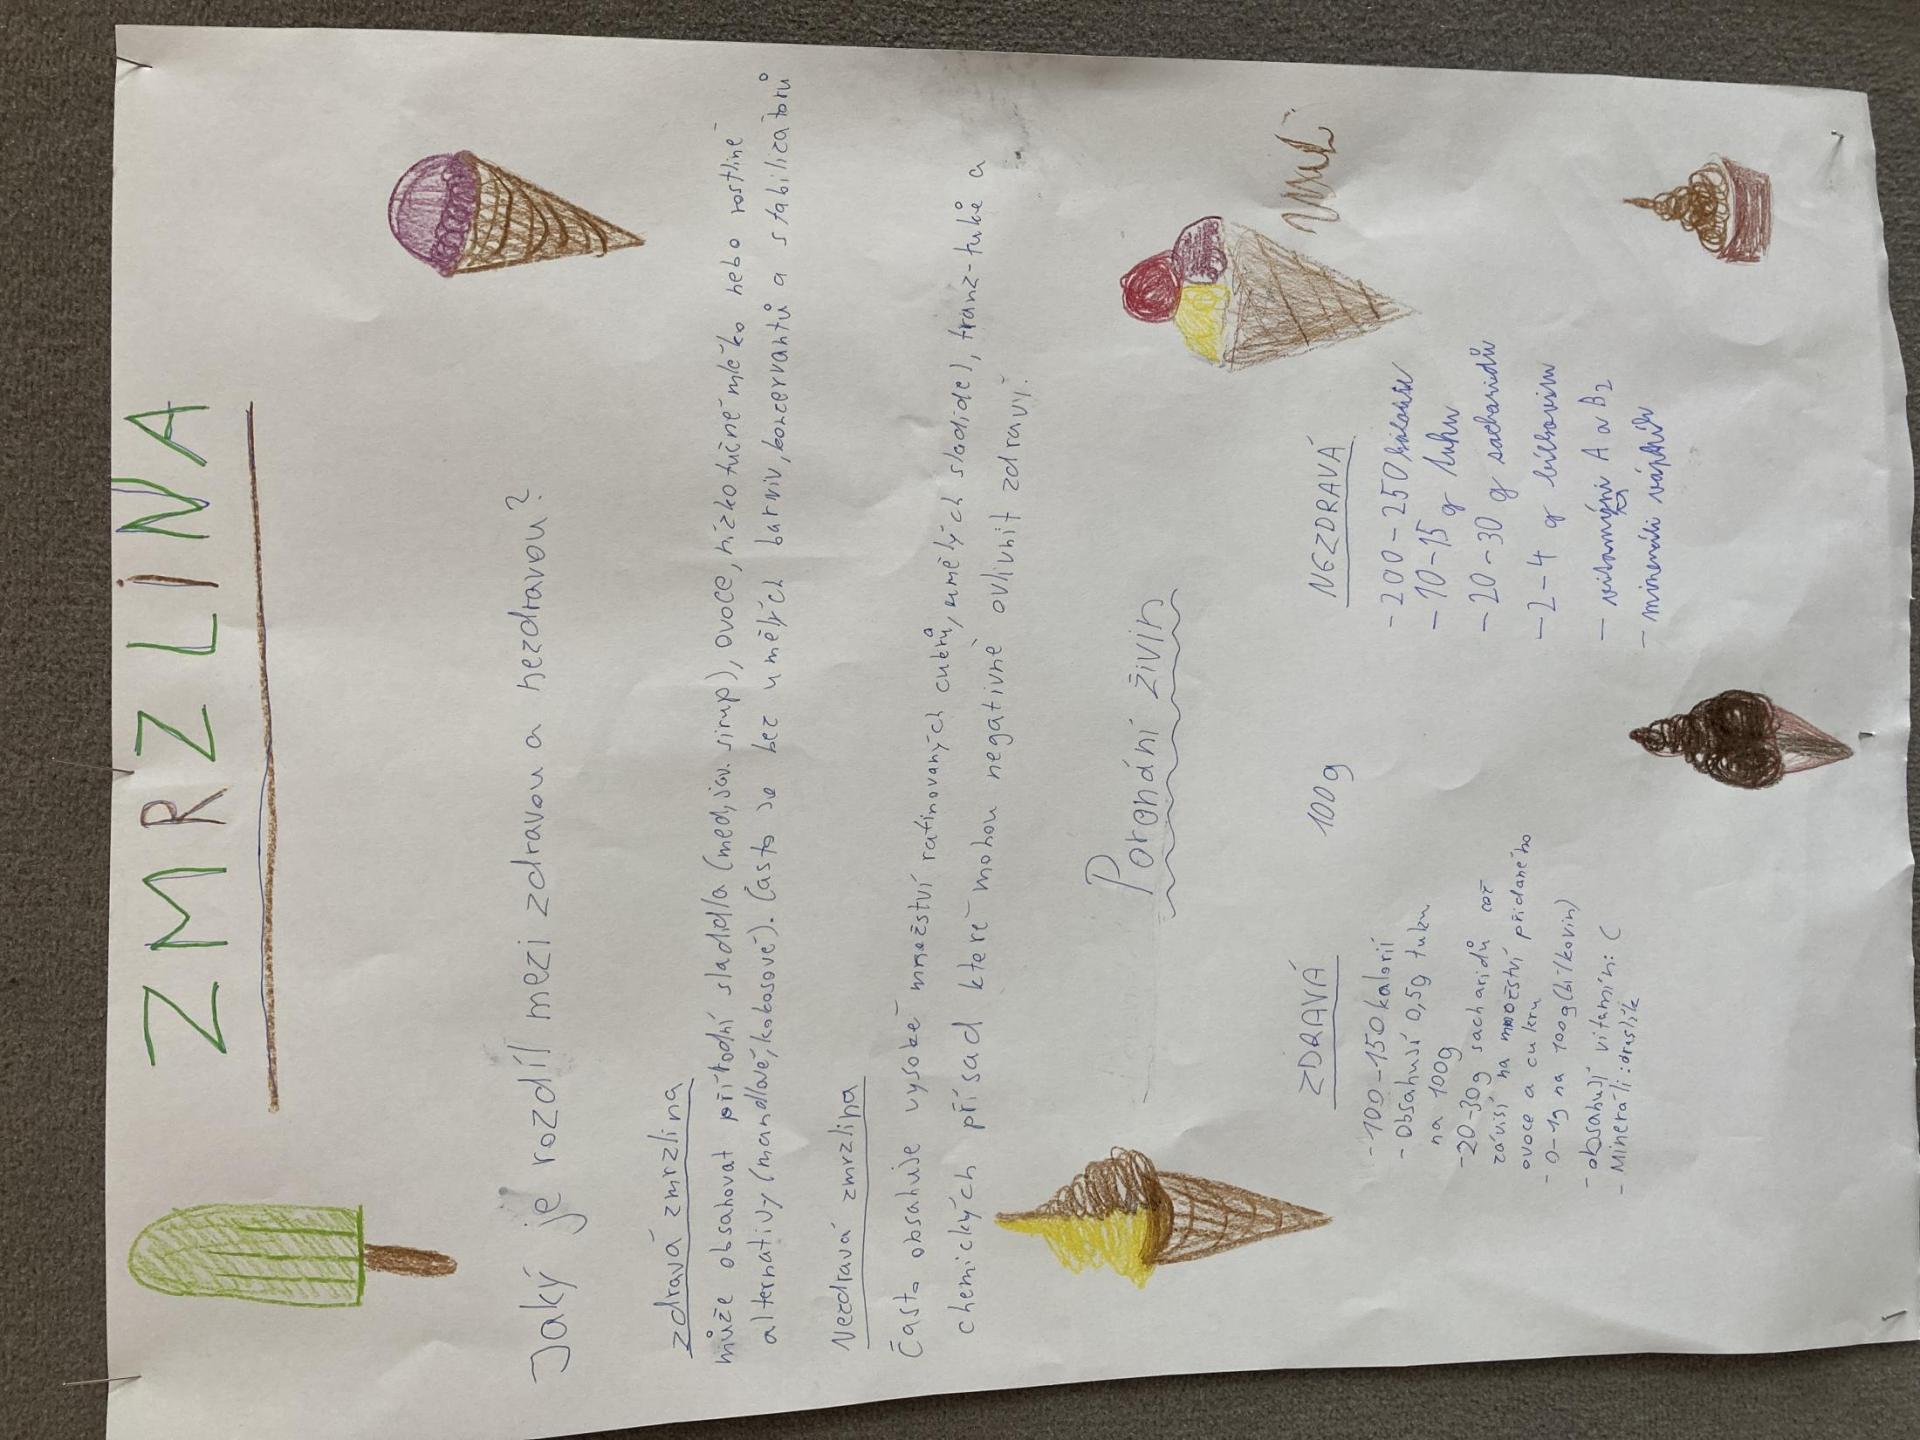 ZMRZLINA
Jaký je rozdíl mezi zdravou a nezdravou?
zdravá zmrzlina
může obsahovat přírodní sladidla (med, jav. sirup), ovoce, nízkotučné mléko nebo rostliné
alternativy (mandlové, kokosové). Často je bez umělých barviv, koncervantů a stabilizátorů
Nezdravá zmrzlina
Často obsahuje vysoké množství rafinovaných cukrů, umělých sladidel, tranz-tuků a
chemických přísad které mohou negativně ovlivnit zdraví.
Porovnání živin
ZDRAVÁ
100g
NEZDRAVÁ
-100-150 kalorií
- Obsahují 0,5g tuku
na 100g
-20-30g sacharidů což
závisí na množství přidaného
ovoce a cukru
- 0-1g na 100g (bílkovin)
- obsahují vitamín: C
- Minerálí: draslík
-200-250 kalorií
-10-15 g tuku
-20-30 g sacharidů
-2-4 g bílkovin
- vitamíny A a B2
- minerálí vápník